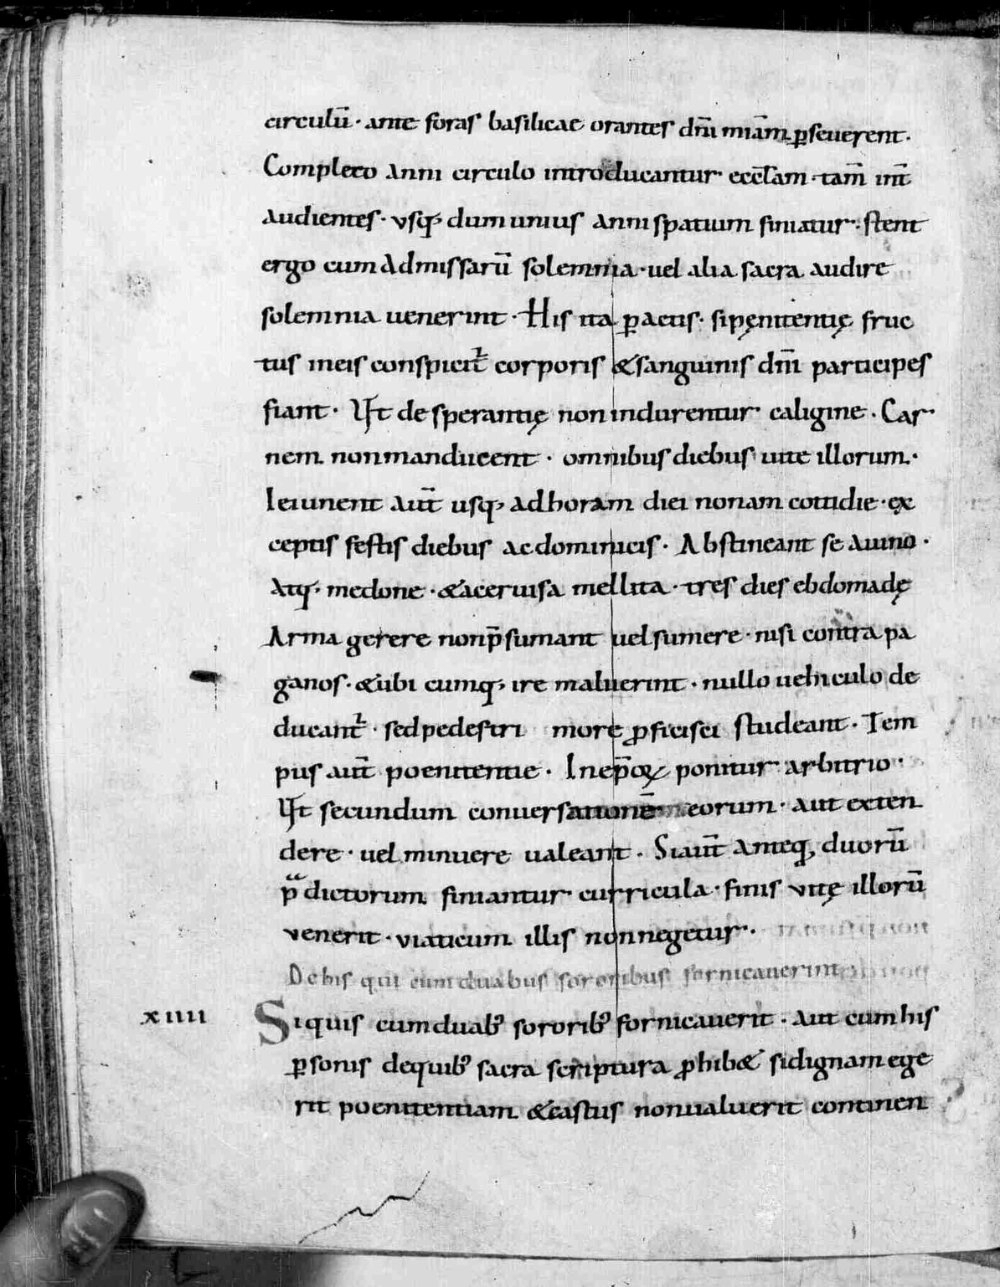 circulū · ante foras basilicae orantes dn̄i miam̄ ꝑseuerent ·
Completo anni circulo introducantur · ecc̄lam · tam̄ int̄
audientes · vsq; dum unius anni spatium finiatur · stent
ergo cum admissarū solemnia · uel alia sacra audire
solemnia uenerint · His ita ꝑactis · si pęnitentię fruc
tus in eis conspicit᷑ corporis & sanguinis dn̄i participes
fiant · Ut desperantię non indurentur caligine · Car
nem non manducent · omnibus diebus uite illorum ·
Ieiunent aut̄ usq; ad horam diei nonam cottidie · ex
ceptis festis diebus ac dominicis · Abstineant se a uino ·
Atq; medone · & a ceruisa mellita · tres dies ebdomadę
Arma gerere non p̄sumant uel sumere · nisi contra pa
ganos · & ubi cumq; ire maluerint · nullo uehiculo de
ducant᷑ · sed pedestri more ꝓficisci studeant · Tem
pus aut̄ poenitentie · In ep̄oꝝ ponitur arbitrio ·
Ut secundum conuersationē eorum · aut exten
dere · uel minuere ualeant · Si aut̄ anteq; duorū
p̄dictorum finiantur curricula · finis vitę illorū
venerit · viaticum illis non negetur ·
De his qui cum duabus sororibus fornicauerint
xiiii Siquis cum duab; sororib; fornicauerit · aut cum his
ꝑsonis de quib; sacra scriptura ꝓhib& si dignam ege
rit poenitentiam & castus non ualuerit continen